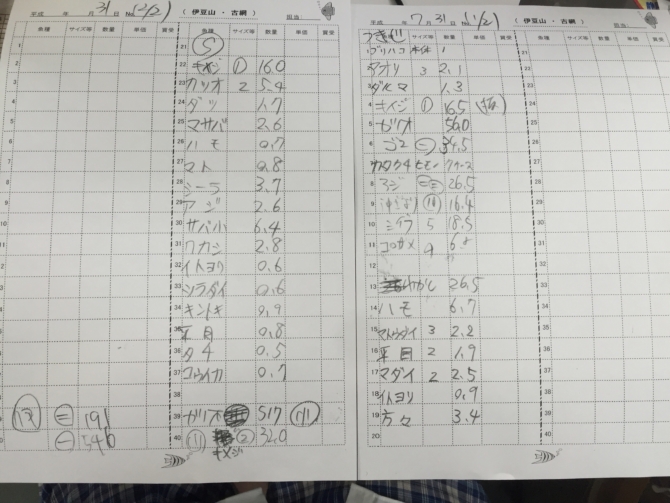 年 月 31 日 No. (2/2) ( 伊豆山 ・ 古網 ) 担当
魚種 サイズ等 数量 単価 買受 魚種 サイズ等 数量 単価 買受
21 S
22 キメジ ① 16.0
23 カツオ 2 5.4
24 ダツ 1.7
マサバ 2.6
26 ハモ 0.7
27 マト 0.8
28 シーラ 3.7
29 アジ 2.6
30 サバ小 6.4
31 ワカシ 2.8
32 イトヨリ 0.6
33 シラダイ 0.6
34 キントキ 0.9
35 平目 0.8
36 タチ 0.5
37 コウイカ 0.7
二 191 39 ガリオ 517
一 540 40 ② 32.0
キメジ
平成 年 7 月 31 日 No. (1/2) ( 伊豆山 ・ 古網 ) 担当
サイズ等 数量 単価 買受 魚種 サイズ等 数量 単価 買受
ブリハコ 本体 1
アオリ 3 2.1
ダルマ 1.3
4 キメジ ① 16.5
5 ガリオ 56.0
6 ゴマ 二 34.5
8 アジ 26.5
9 16.4
10 シイラ 5 18.5
11
13 わかし 26.5
14 ハモ 6.7
15 マトウダイ 3 2.2
16 平目 2 1.9
17 マダイ 2 2.5
18 イトヨリ 0.9
19 方々 3.4
20